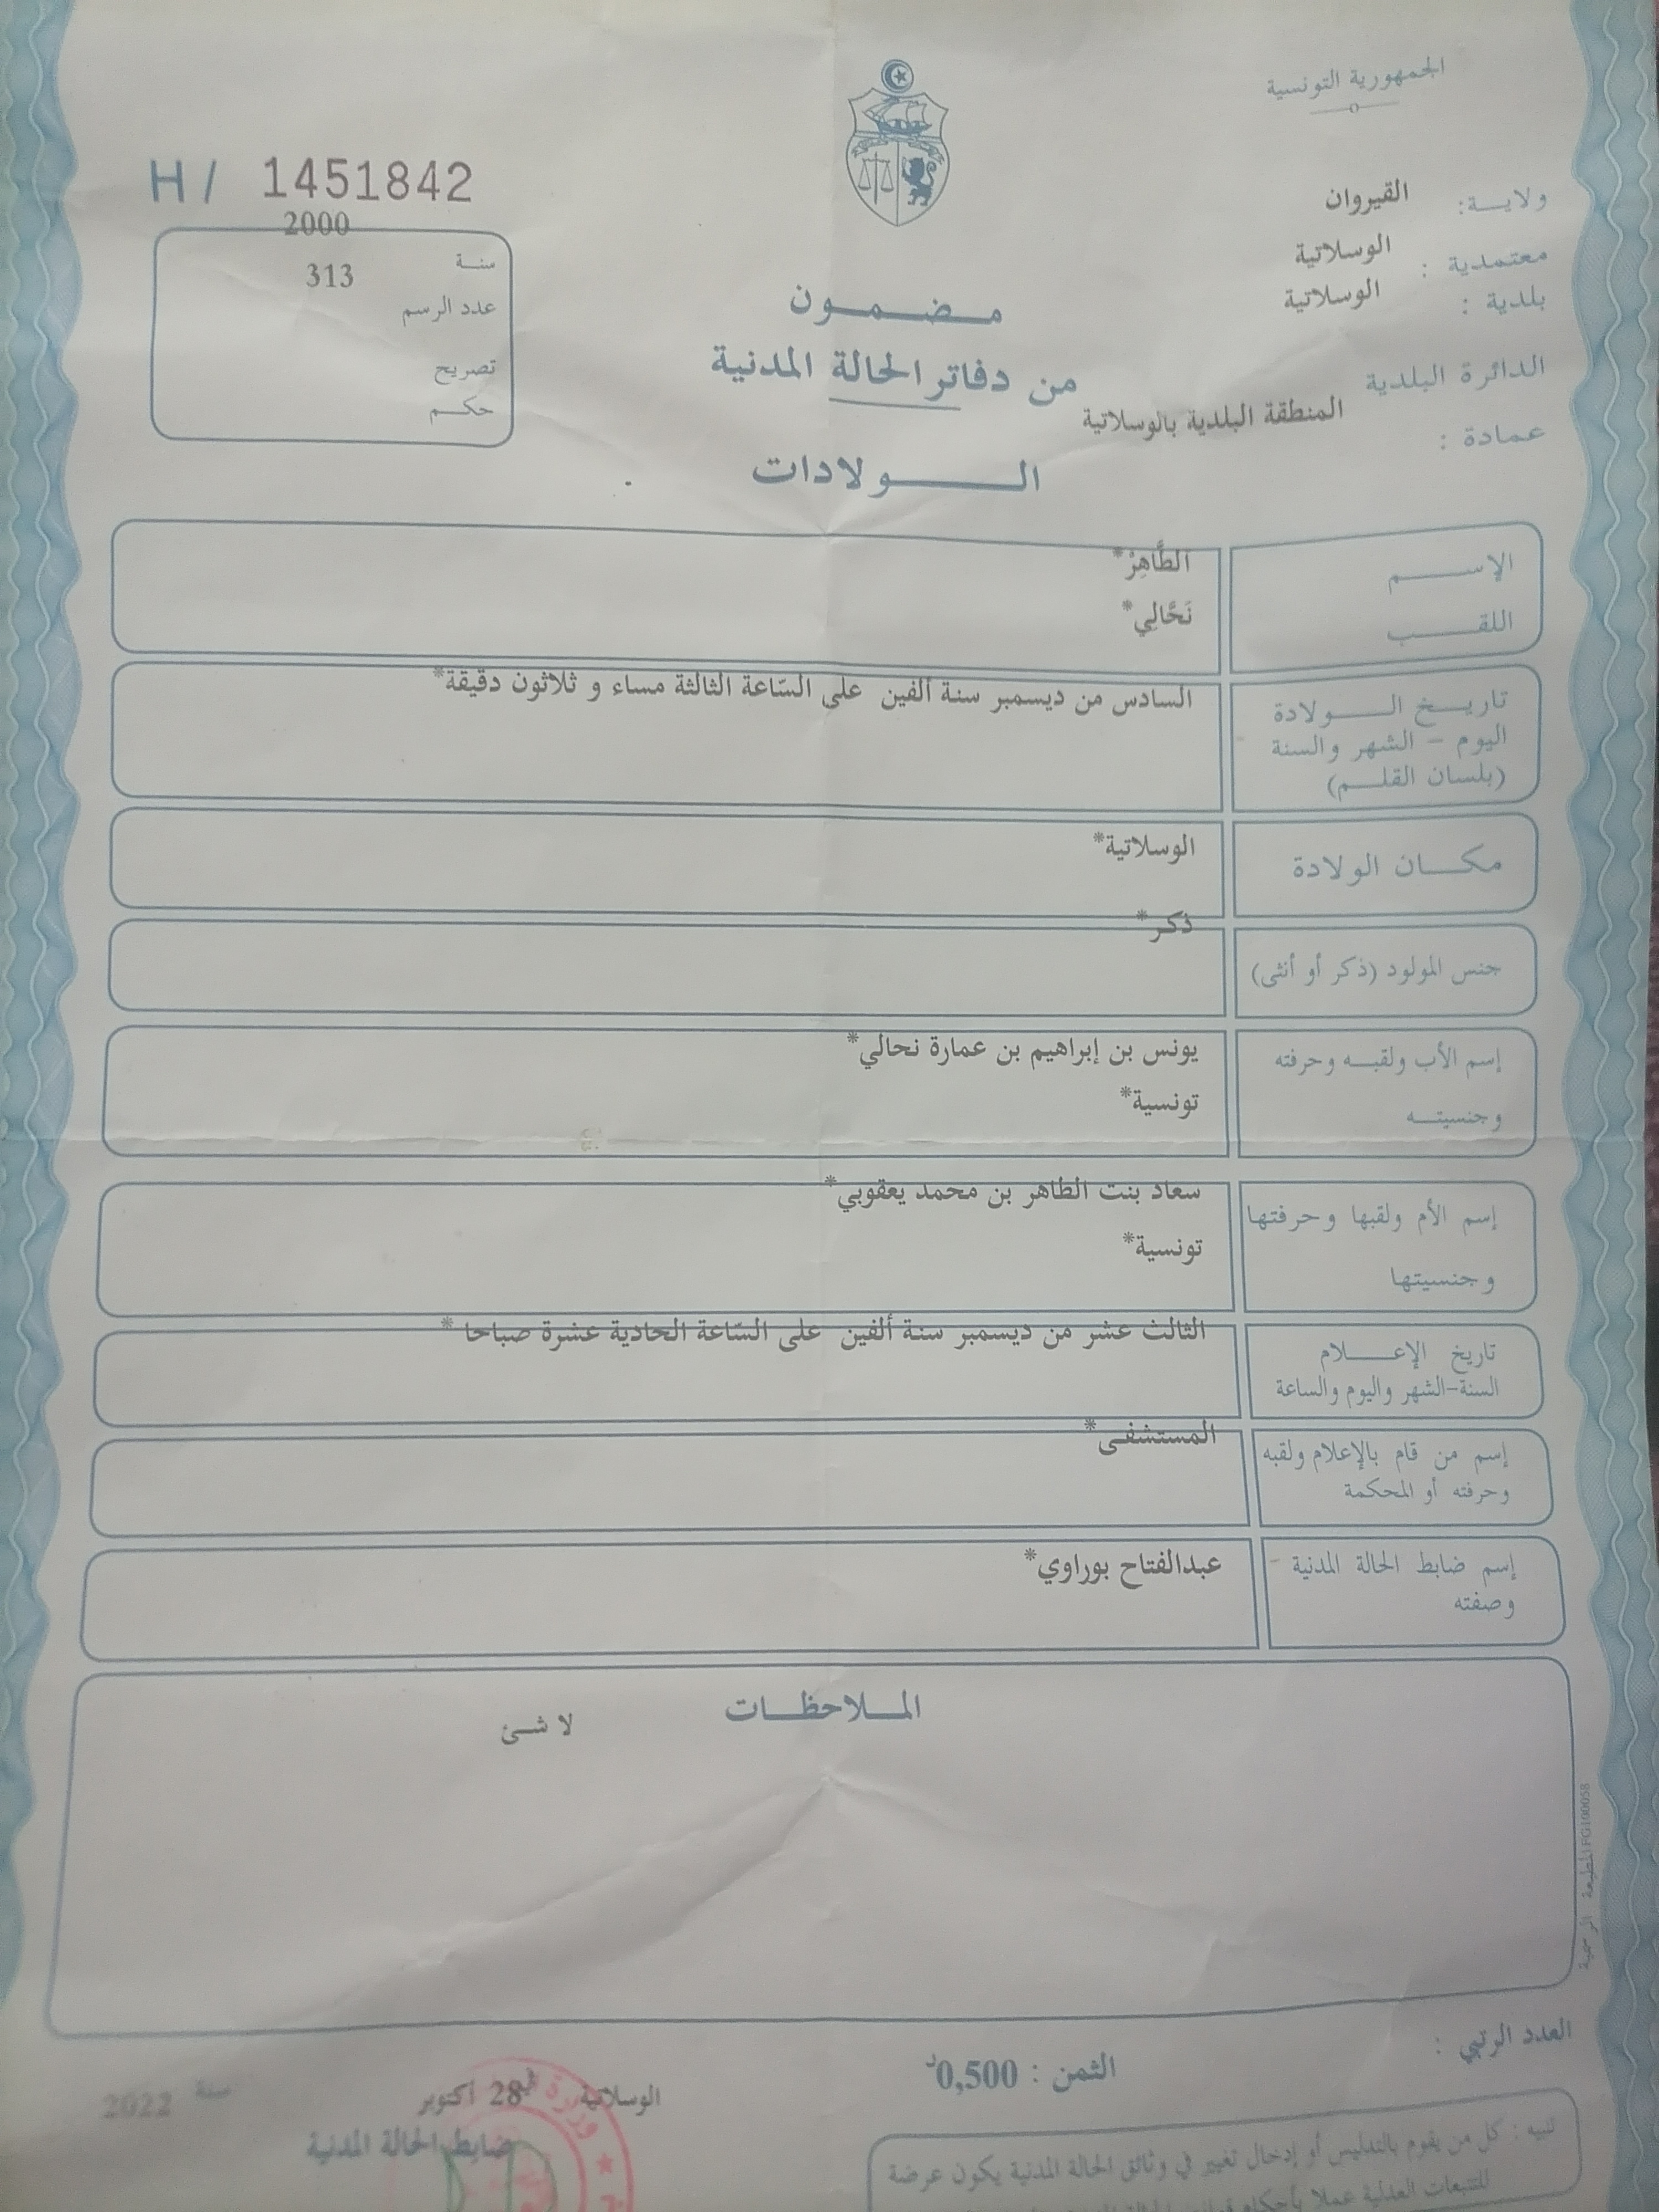 الجمهورية التونسية
ولايــة: القيروان
معتمدية : الوسلاتية
بلدية : الوسلاتية
الدائرة البلدية
المنطقة البلدية بالوسلاتية
عمادة :
H/ 1451842
2000
سنة
313
عدد الرسم
تصريح
حكم
مضمون
من دفاتر الحالة المدنية
الولادات
الإسم
الطَّاهِرْ*
اللقب
نَحَّالِي*
تاريخ الولادة
اليوم - الشهر والسنة
(بلسان القلم)
السادس من ديسمبر سنة ألفين على السّاعة الثالثة مساء و ثلاثون دقيقة*
مكان الولادة
الوسلاتية*
جنس المولود (ذكر أو أنثى)
ذكر*
إسم الأب ولقبه وحرفته
وجنسيته
يونس بن إبراهيم بن عمارة نحالي*
تونسية*
إسم الأم ولقبها وحرفتها
وجنسيتها
سعاد بنت الطاهر بن محمد يعقوبي*
تونسية*
تاريخ الإعلام
السنة-الشهر واليوم والساعة
الثالث عشر من ديسمبر سنة ألفين على السّاعة الحادية عشرة صباحا *
إسم من قام بالإعلام ولقبه
وحرفته أو المحكمة
المستشفى*
إسم ضابط الحالة المدنية
وصفته
عبدالفتاح بوراوي*
الملاحظات
لا شئ
المطبعة الرسمية FG100058
العدد الرتبي :
الثمن : 0,500د
الوسلاتية في 28 أكتوبر سنة 2022
ضابط الحالة المدنية
وزارة
تنبيه : كل من يقوم بالتدليس أو إدخال تغيير في وثائق الحالة المدنية يكون عرضة
للتتبعات العدلية عملا بأحكام